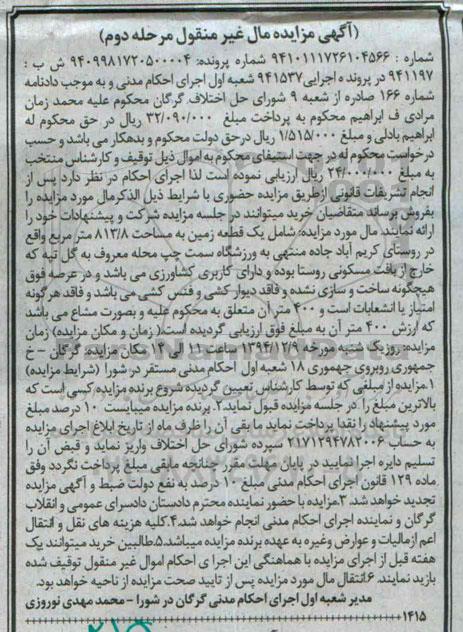 (آگهی مزایده مال غیر منقول مرحله دوم)
شماره : ۹۴۱۰۱۱۱۷۲۶۱۰۴۵۶۶ شماره پرونده: ۹۴۰۹۹۸۱۷۲۰۵۰۰۰۰۴ ش ب :
۹۴۱۱۹۷ در پرونده اجرایی ۹۴۱۵۳۷ شعبه اول اجرای احکام مدنی و به موجب دادنامه
شماره ۱۶۶ صادره از شعبه ۹ شورای حل اختلاف گرگان محکوم علیه محمد زمان
مرادی ف ابراهیم محکوم به پرداخت مبلغ ۳۲/۰۹۰/۰۰۰ ریال در حق محکوم له
ابراهیم بادلی و مبلغ ۱/۵۱۵/۰۰۰ ریال درحق دولت محکوم و بدهکار می باشد و حسب
درخواست محکوم له در جهت استیفای محکوم به اموال ذیل توقیف و کارشناس منتخب
به مبلغ ۲۴/۰۰۰/۰۰۰ ریال ارزیابی نموده است لذا اجرای احکام در نظر دارد پس از
انجام تشریفات قانونی ازطریق مزایده حضوری با شرایط ذیل الذکرمال مورد مزایده را
بفروش برساند متقاضیان خرید میتوانند در جلسه مزایده شرکت و پیشنهادات خود را
ارائه نمایند. مال مورد مزایده: شامل یک قطعه زمین به مساحت ۸۱۳/۸ متر مربع واقع
در روستای کریم آباد جاده منتهی به ورزشگاه سمت چپ محله معروف به گل تپه که
خارج از بافت مسکونی روستا بوده و دارای کاربری کشاورزی می باشد و در عرصه فوق
هیچگونه ساخت و سازی نشده و فاقد دیوار کشی و فنس کشی می باشد و فاقد هرگونه
امتیاز یا انشعابات است و ۴۰۰ متر آن متعلق به محکوم علیه و بصورت مشاع می باشد
که ارزش ۴۰۰ متر آن به مبلغ فوق ارزیابی گردیده است.( زمان و مکان مزایده) زمان
مزایده: روزیک شنبه مورخه ۱۳۹۴/۱۲/۹ ساعت ۱۱ الی ۱۲ مکان مزایده: گرگان - خ
جمهوری روبروی جمهوری ۱۸ شعبه اول احکام مدنی مستقر در شورا (شرایط مزایده)
۱.مزایده از مبلغی که توسط کارشناس تعیین گردیده شروع برنده مزایده کسی است که
بالاترین مبلغ را در جلسه مزایده قبول نماید.۲.برنده مزایده میبایست ۱۰ درصد مبلغ
مورد پیشنهاد را نقدا پرداخت نماید ما بقی آن را ظرف ماه از تاریخ ابلاغ اجرای مزایده
به حساب ۲۱۷۱۲۹۴۷۸۲۰۰۶ سپرده شورای حل اختلاف واریز نماید و قبض آن را
تسلیم دایره اجرا نمایید در پایان مهلت مقرر چنانچه مابقی مبلغ پرداخت نگردد وفق
ماده ۱۲۹ قانون اجرای احکام مدنی مبلغ ۱۰ درصد به نفع دولت ضبط و آگهی مزایده
تجدید خواهد شد. ۳.مزایده با حضور نماینده محترم دادستان دادسرای عمومی و انقلاب
گرگان و نماینده اجرای احکام مدنی انجام خواهد شد.۴.کلیه هزینه های نقل و انتقال
اعم ازمالیات و عوارض وغیره به عهده برنده مزایده میباشد.۵.طالبین خرید میتوانند یک
هفته قبل از اجرای مزایده با هماهنگی این اجرا ی احکام اموال غیر منقول توقیف شده
بازدید نمایند. ۶.انتقال مال مورد مزایده پس از تایید صحت مزایده از ناحیه خواهد بود.
مدیر شعبه اول اجرای احکام مدنی گرگان در شورا - محمد مهدی نوروزی
۱۴۱۵